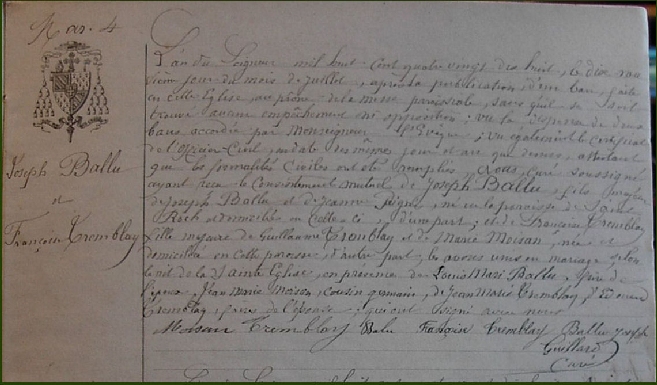 Mar. 4
Joseph Ballu
et
Françoise Tremblay
L'an du Seigneur mil huit cent quatre vingt dix huit, le dix neu
vième jour du mois de Juillet, après la publication d'un ban, faite
en cette Eglise, au prône de la messe paroissiale, sans qu'il se soit
trouvé aucun empêchement ni opposition; vu la dispense de deux
bans accordée par Monseigneur l'Evêque; vu également le certificat
de l'officier Civil, en date des même jour et an que dessus, attestant
que les formalités civiles ont été remplies, Nous, Curé soussigné
ayant reçu le consentement mutuel de Joseph Ballu, fils majeur
de Joseph Ballu et de Jeanne, né en la paroisse de
Roch et domicilié en celle-ci, d'une part; et de Françoise Tremblay
fille majeure de Guillaume Tremblay et de Marie Moisan, née et
domiciliée en cette paroisse, d'autre part, les avons unis en mariage selon
le rit de la Sainte Eglise, en présence de Louis Marie Ballu, frère de
l'époux, Jean Marie Moisan, cousin germain, de Jean Marie Tremblay,
Tremblay, frères de l'épouse, qui ont signé avec nous
Moisan Tremblay Ballu Françoise Tremblay Ballu Joseph
Guillard
Curé